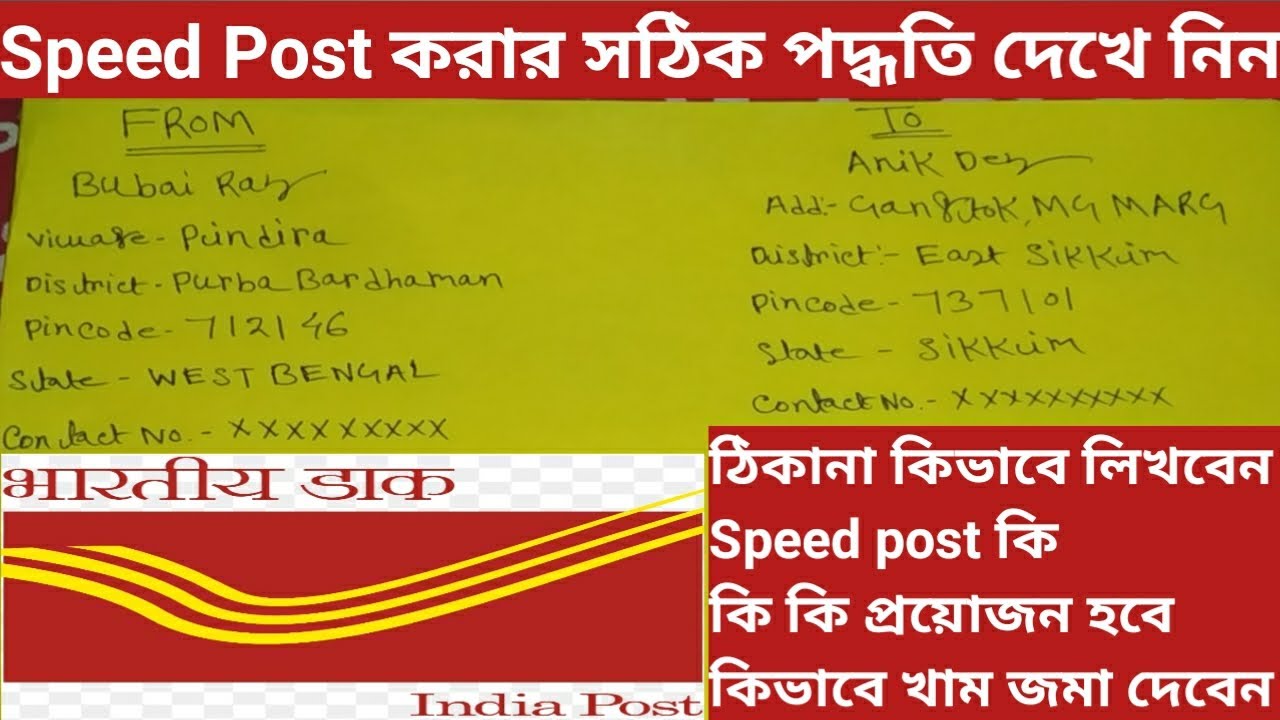 Speed Post করার সঠিক পদ্ধতি দেখে নিন
FROM
Bubai Ray
Village - Pundira
District - Purba Bardhaman
Pincode - 712146
State - WEST BENGAL
Contact No. - XXXXXXXXX
TO
Anik Dey
Add:- Gangtok, MG MARG
District:- East Sikkim
Pincode - 737101
State - Sikkim
Contact No. - XXXXXXXXXX
भारतीय डाक
India Post
ঠিকানা কিভাবে লিখবেন
Speed post কি
কি কি প্রয়োজন হবে
কিভাবে খাম জমা দেবেন